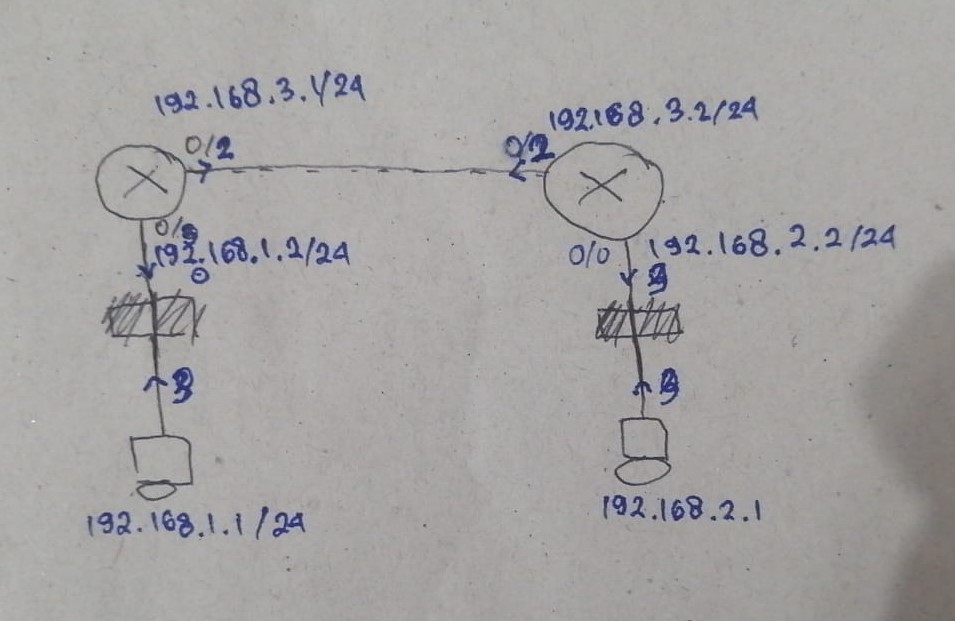 192.168.3.1/24
192.168.3.2/24
0/2
0/2
192.168.1.2/24
0/0
192.168.2.2/24
192.168.1.1/24
192.168.2.1